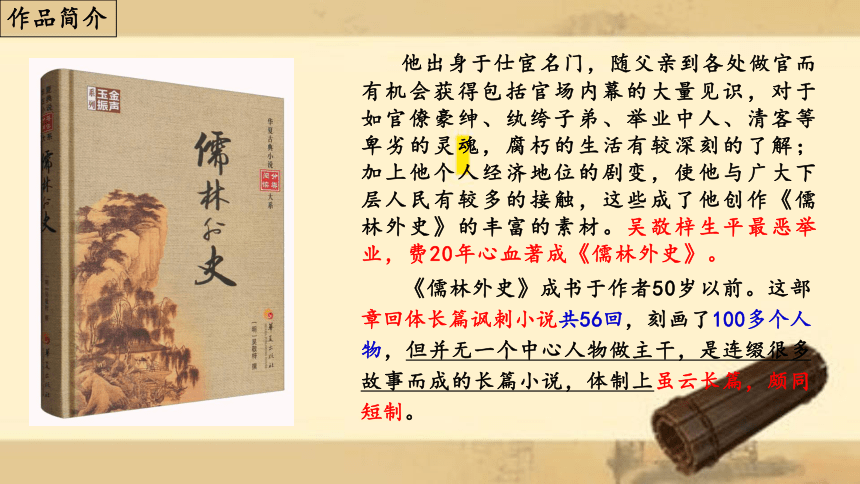 作品简介
他出身于仕宦名门，随父亲到各处做官而
有机会获得包括官场内幕的大量见识，对于
如官僚豪绅、纨绔子弟、举业中人、清客等
卑劣的灵魂，腐朽的生活有较深刻的了解；
加上他个人经济地位的剧变，使他与广大下
层人民有较多的接触，这些成了他创作《儒
林外史》的丰富的素材。吴敬梓生平最恶举
业，费20年心血著成《儒林外史》。
《儒林外史》成书于作者50岁以前。这部
章回体长篇讽刺小说共56回，刻画了100多个人
物，但并无一个中心人物做主干，是连缀很多
故事而成的长篇小说，体制上虽云长篇，颇同
短制。
金声
玉振
系列
华夏古典小说
分类
阅读
大系
儒林外史
华夏出版社
儒林外史
华夏出版社